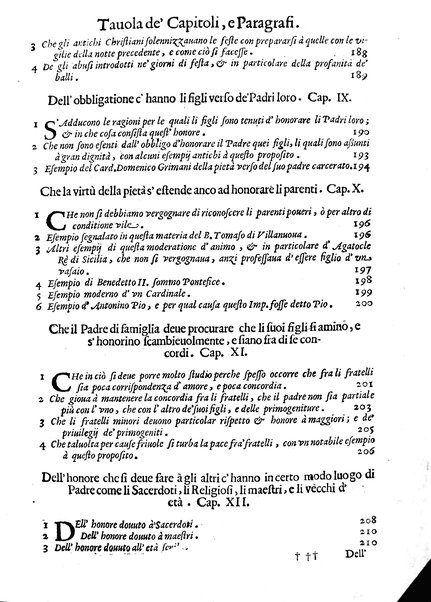 Tauola de' Capitoli, e Paragrafi.
3 Che gli antichi Christiani solennizzauano le feste con prepararsi à quelle con le vi-
gilie della notte precedente, e come ciò si facesse. 188
4 De gli abusi introdotti ne' giorni di festa, & in particolare della profanità de'
balli. 189
Dell'obbligatione c'hanno li figli verso de' Padri loro. Cap. IX.
1 S'Adducono le ragioni per le quali li figli sono tenuti d'honorare li Padri loro;
& in che cosa consista quest' honore. 190
2 Che non sono esenti dall' obbligo d'honorare il Padre quei figli, li quali sono assunti
à gran dignità, con alcuni esempij antichi à questo proposito. 193
3 Esempio del Card. Domenico Grimani della pietà verso del suo padre carcerato. 194
Che la virtù della pietà s'estende anco ad honorare li parenti. Cap. X.
1 CHe non si debbiamo vergognare di riconoscere li parenti poueri, ò per altro di
conditione vile. 196
2 Esempio segnalato in questa materia del B. Tomaso di Villanuoua. 196
3 Altri esempij di questa moderatione d'animo, & in particolare d'Agatocle
Rè di Sicilia, che non si vergognaua, anzi professaua d'essere figlio d'vn
vasaio. 197
4 Esempio di Benedetto II. sommo Pontefice. 198
5 Esempio moderno d'vn Cardinale. 199
6 Esempio d'Antonino Pio, e per qual causa questo Imp. fosse detto Pio. 200
Che il Padre di famiglia deue procurare che li suoi figli si amino, e
s'honorino scambieuolmente, e siano fra di se con-
cordi. Cap. XI.
1 CHe in ciò si deue porre molto studio perche spesso occorre che fra li fratelli
sia poca corrispondenza d'amore, e poca concordia. 201
2 Che gioua à mantenere la concordia fra li fratelli, che il padre non sia partiale
più con l'vno, che con l'altro de' suoi figli, e delle primogeniture. 203
3 Che li fratelli minori deuono portar rispetto & honore à maggiori; e de'
priuilegij de' primogeniti. 205
4 Che taluolta per cause friuole si turba la pace frà fratelli, con vn notabile esempio
à questo proposito. 206
Dell'honore che si deue fare à gli altri c'hanno in certo modo luogo di
Padre come li Sacerdoti, li Religiosi, li maestri, e li vecchi d'
età. Cap. XII.
1 DEll' honore douuto à Sacerdoti. 208
2 Dell' honore douuto à maestri. 210
3 Dell' honore douuto all'età 210
† ††
Dell'